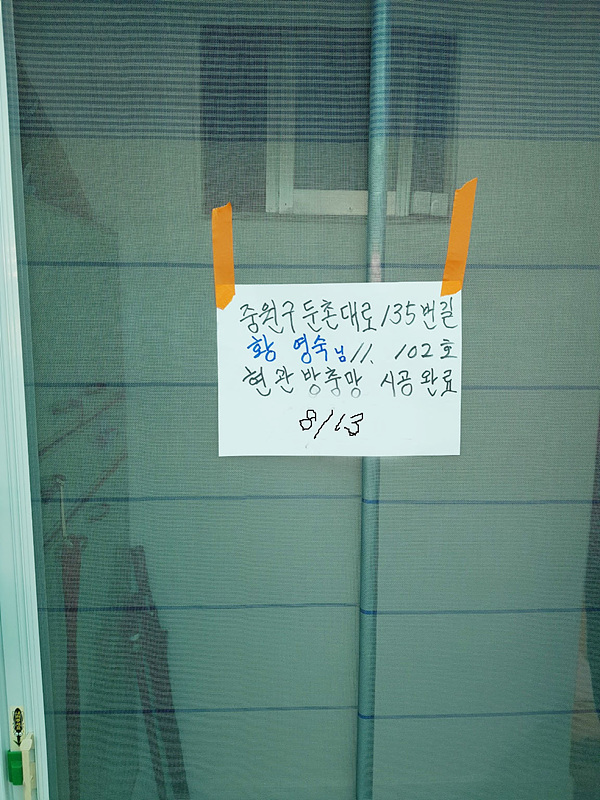 중원구 둔촌대로 135번길
황 영숙님 11. 102호
현관방충망 시공완료
8/13